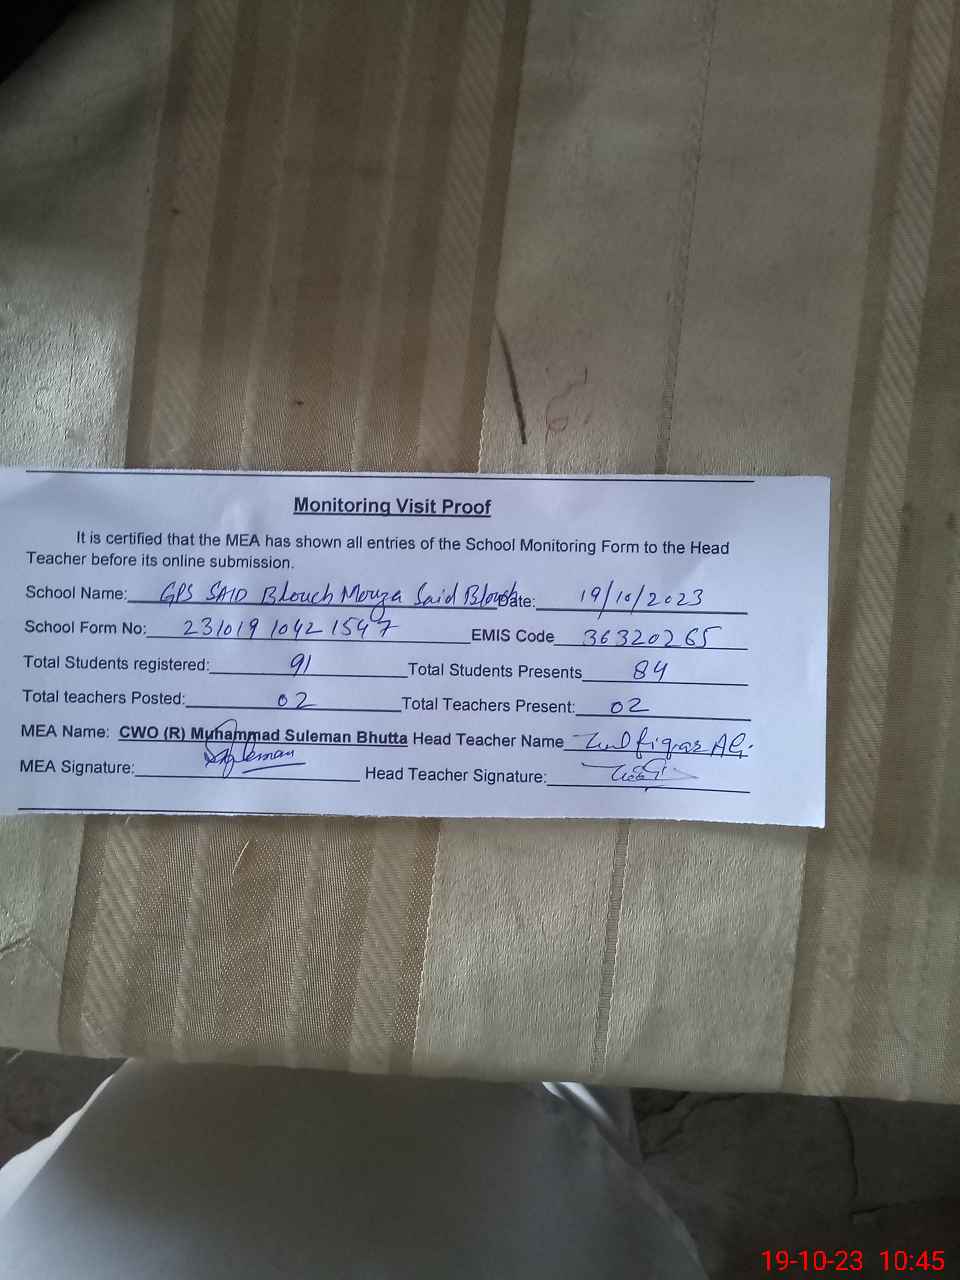 Monitoring Visit Proof
It is certified that the MEA has shown all entries of the School Monitoring Form to the Head
Teacher before its online submission.
School Name: GPS SAID Blouch Mouza Said Blouch Date: 19/10/2023
School Form No: 23101910421547 EMIS Code 36320265
Total Students registered: 91 Total Students Presents 84
Total teachers Posted: 02 Total Teachers Present: 02
MEA Name: CWO (R) Muhammad Suleman Bhutta Head Teacher Name Zulfiqar Ali
MEA Signature: Head Teacher Signature:
19-10-23 10:45